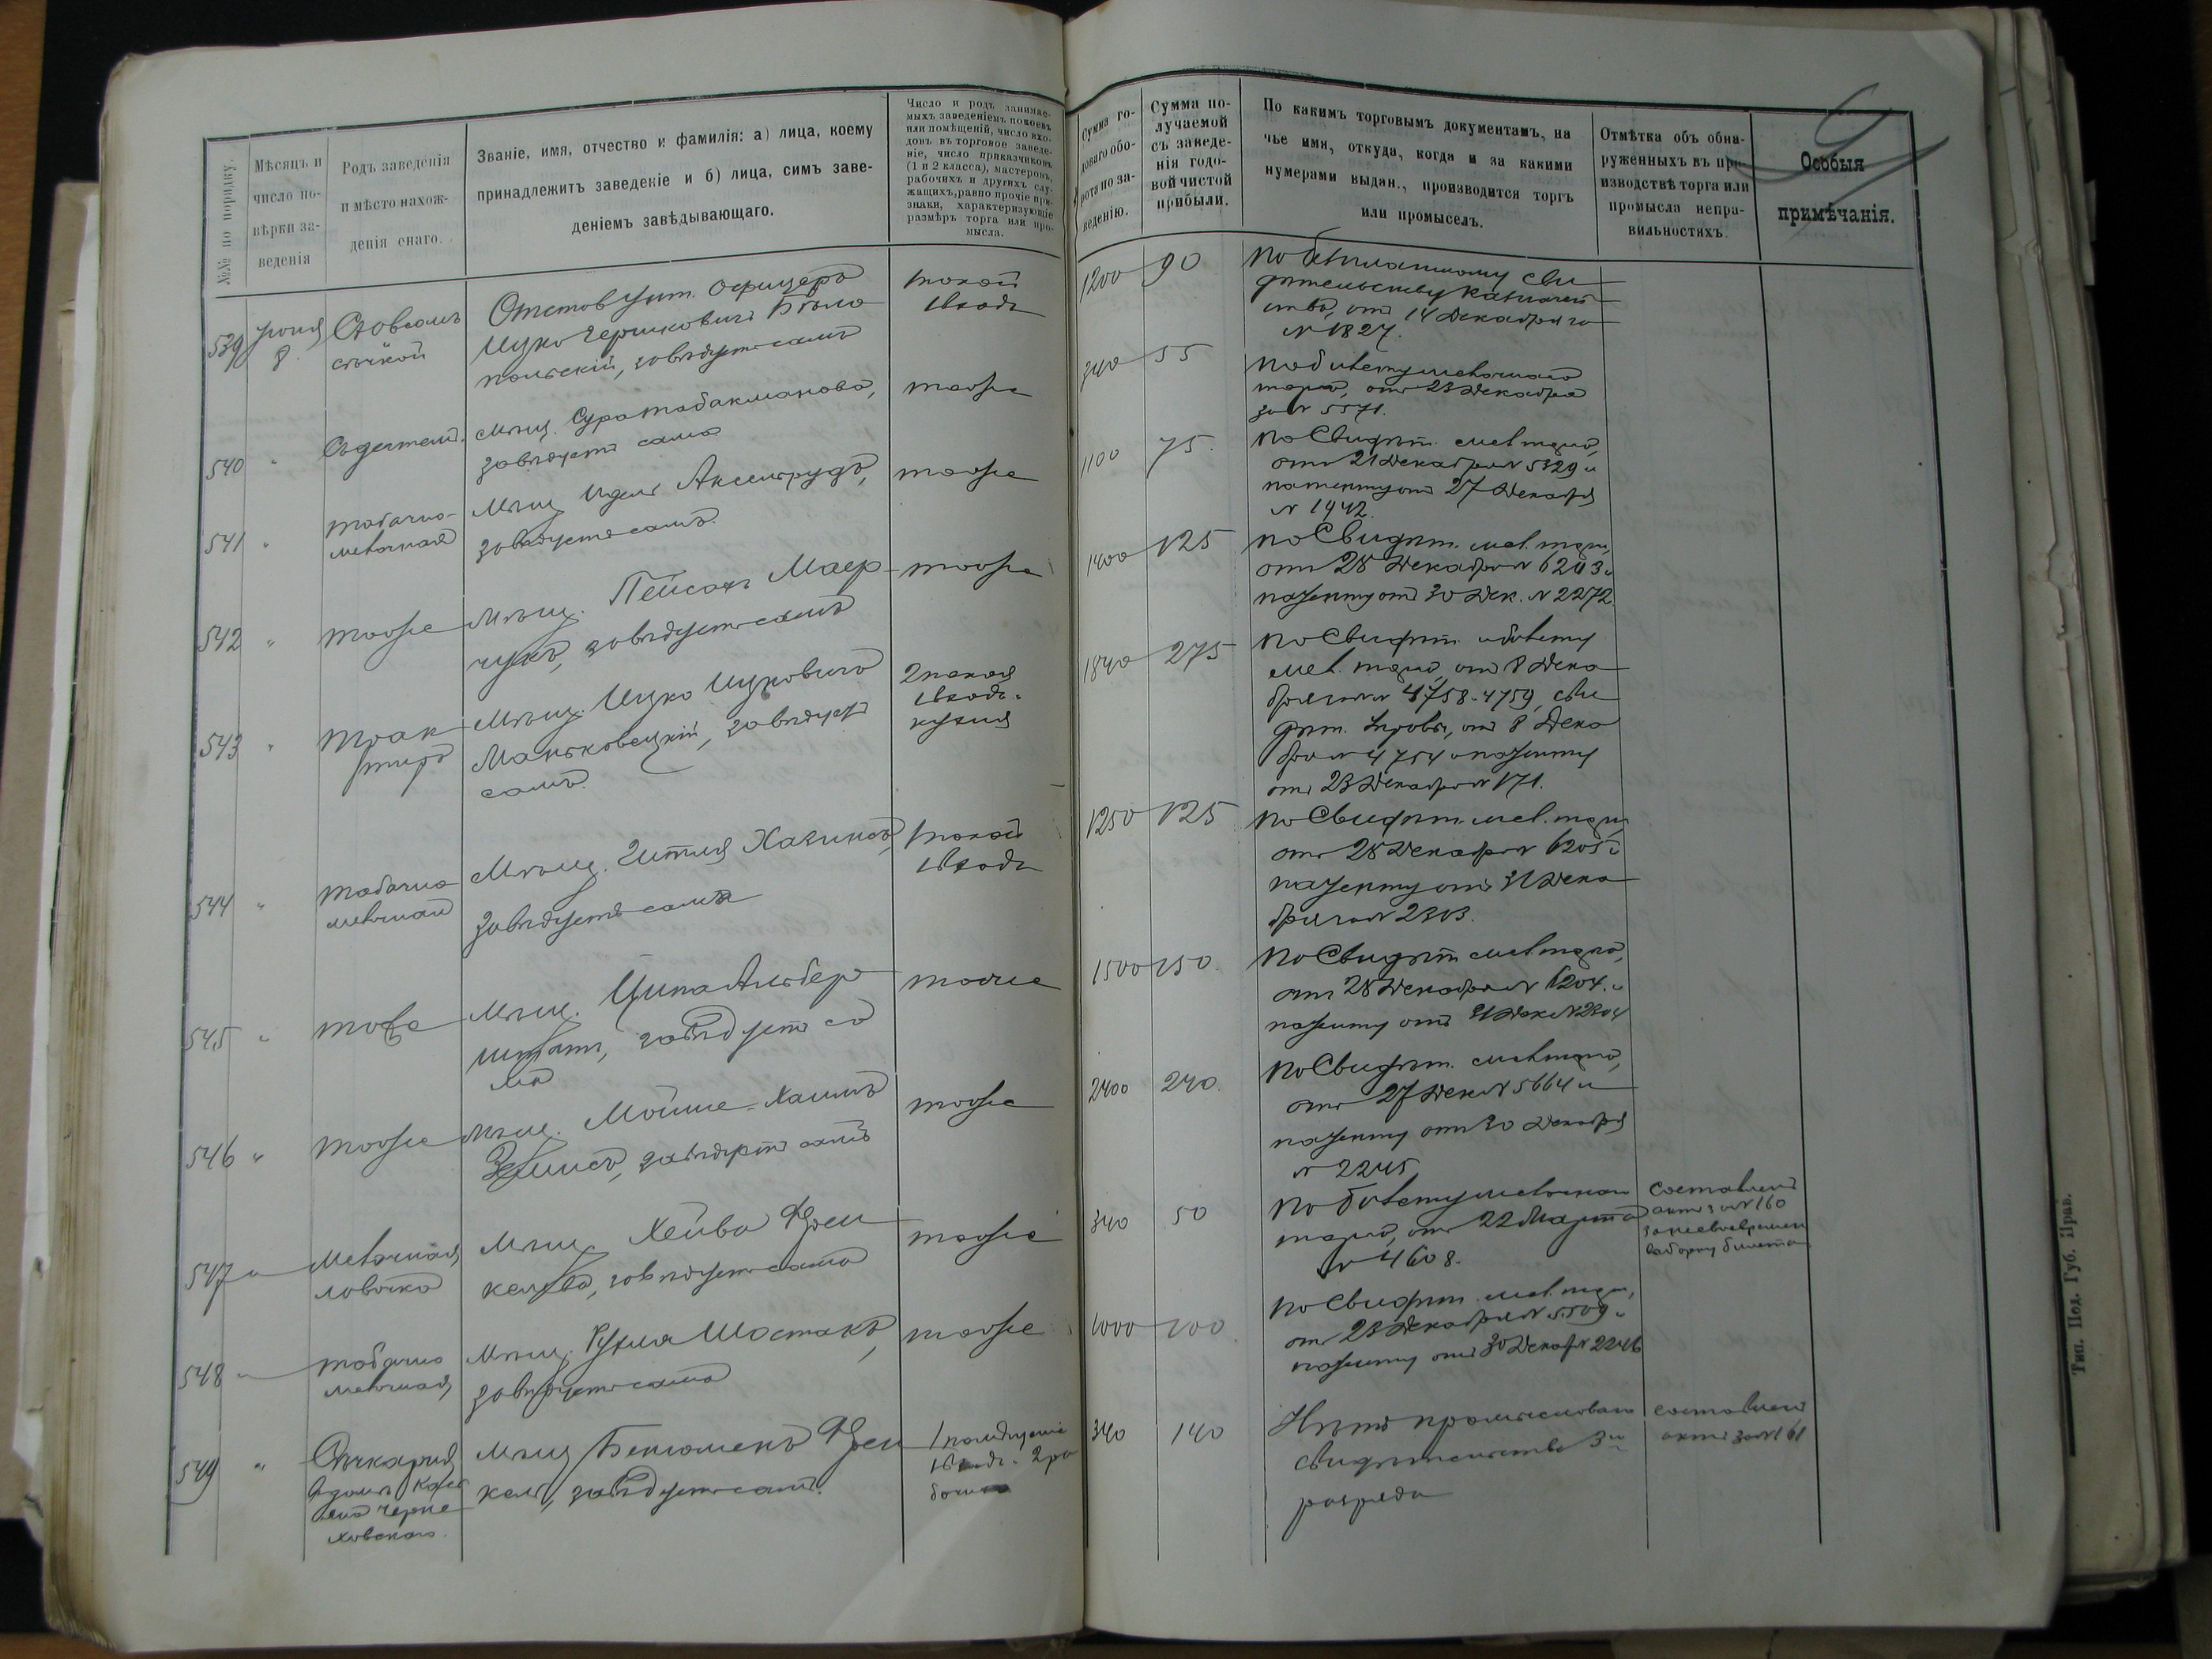 №№ по порядку.
Мѣсяцъ и
число по-
вѣрки за-
веденія
Родъ заведенія
и мѣсто нахож-
денія онаго.
Званіе, имя, отчество и фамилія: а) лица, коему
принадлежитъ заведеніе и б) лица, симъ заве-
деніемъ завѣдывающаго.
Число и родъ занимае-
мыхъ заведеніемъ покоевъ
или помѣщеній, число вхо-
довъ въ торговое заведе-
ніе, число приказчиковъ
(1 и 2 класса), мастеровъ,
рабочихъ и другихъ слу-
жащихъ, равно прочіе при-
знаки, характеризующіе
размѣръ торга или про-
мысла.
Сумма го-
доваго обо-
рота по за-
веденію.
Сумма по-
лучаемой
съ заведе-
нія годо-
вой чистой
прибыли.
По какимъ торговымъ документамъ, на
чье имя, откуда, когда и за какими
нумерами выдан., производится торгъ
или промыселъ.
Отмѣтка объ обна-
руженныхъ въ про-
изводствѣ торга или
промысла непра-
вильностяхъ.
Особыя
примѣчанія.
539
Іюня
8
Отстав. унт. офицеръ
Ицко Гершковичъ Бѣло
польскій, завѣдуетъ самъ
1 покой
1 входъ
1200
90
По безплатному сви
дѣтельству казначей
ства, отъ 14 Декабря за
№ 1827.
540
"
Мѣщ. Сура Табакманова,
завѣдуетъ сама
тоже
340
55
По билету мелочнаго
торга, отъ 23 Декабря
за № 5571.
541
"
Табачно-
мелочная
Мѣщ. Идель Аксельрудъ,
завѣдуетъ самъ.
тоже
1100
75
По Свидѣт. мел. торга,
отъ 21 Декабря № 5329 и
патенту отъ 27 Декабря
№ 1942.
542
"
тоже
Мѣщ. Пейсахъ Маер
чукъ, завѣдуетъ самъ
тоже
1400
125
По Свидѣт. мел. торг,
отъ 28 Декабря № 6203 и
патенту отъ 30 Дек. № 2272
543
"
Трак
тиръ
Мѣщ. Ицко Ицковичъ
Маньковецкій, завѣдует
самъ.
2 покоя
1 входъ и
кухня
1840
275
По Свидѣт. и билету
мел. торга, отъ 8 Дека
бря за №№ 4758-4759, сви
дѣт. отъ 8 Дека
бря № 4754 и патенту
отъ 23 Декабря № 171.
544
"
Табачно
мелочная
Мѣщ. Гитля Хазинъ,
завѣдуетъ сама
1 покой
1 входъ
1250
125
По Свидѣт. мел. торг,
отъ 28 Декабря № 6205 и
патенту отъ 31 Дека
бря за № 2303.
545
"
тоже
Мѣщ. Ципа Альбер
штатъ, завѣдуетъ са
ма
тоже
1500
150
По Свидѣт. мел. торга,
отъ 28 Декабря № 6204 и
патенту отъ 31 Дек № 2304
546
"
тоже
Мѣщ. Мойше-Хаимъ
завѣдуетъ самъ
тоже
2400
240
По Свидѣт. мел. торга,
отъ 27 Дек № 5664 и
патенту отъ 30 Декабря
№ 2245
547
"
Мелочная
лавочка
Мѣщ. Хейва Френ
келева, завѣдуетъ сама
тоже
340
50
По билету мелочнаго
торга, отъ 22 Марта
№ 4608.
Составленъ
актъ за № 160
за несвоевремен
выборку билета
548
"
Табачно
мелочная
Мѣщ. Рухля Шостакъ,
завѣдуетъ сама
тоже
1000
100
По Свидѣт. мел. торг,
отъ 23 Декабря № 5509 и
патенту отъ 30 Декаб № 2246
549
"
ховскаго.
Мѣщ. Беньюменъ Френ
кель, завѣдуетъ самъ.
1 помѣщеніе
1 входъ и 2 ра
бочихъ
340
140
Нѣтъ промысловаго
свидѣтельства 3го
разряда
составленъ
актъ за № 161
Тип. Под. Губ. Прав.